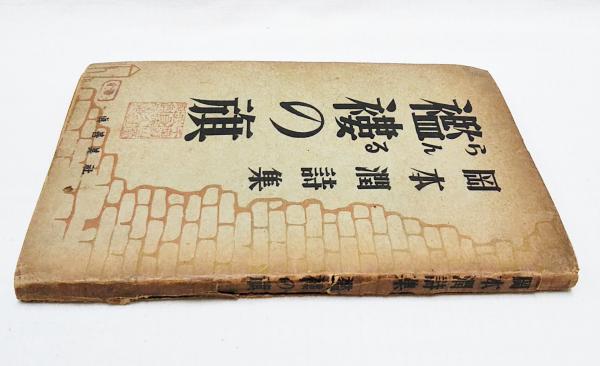 岡本潤詩集
襤褸の旗
らんる
眞善美社
岡本潤詩集 襤褸の旗